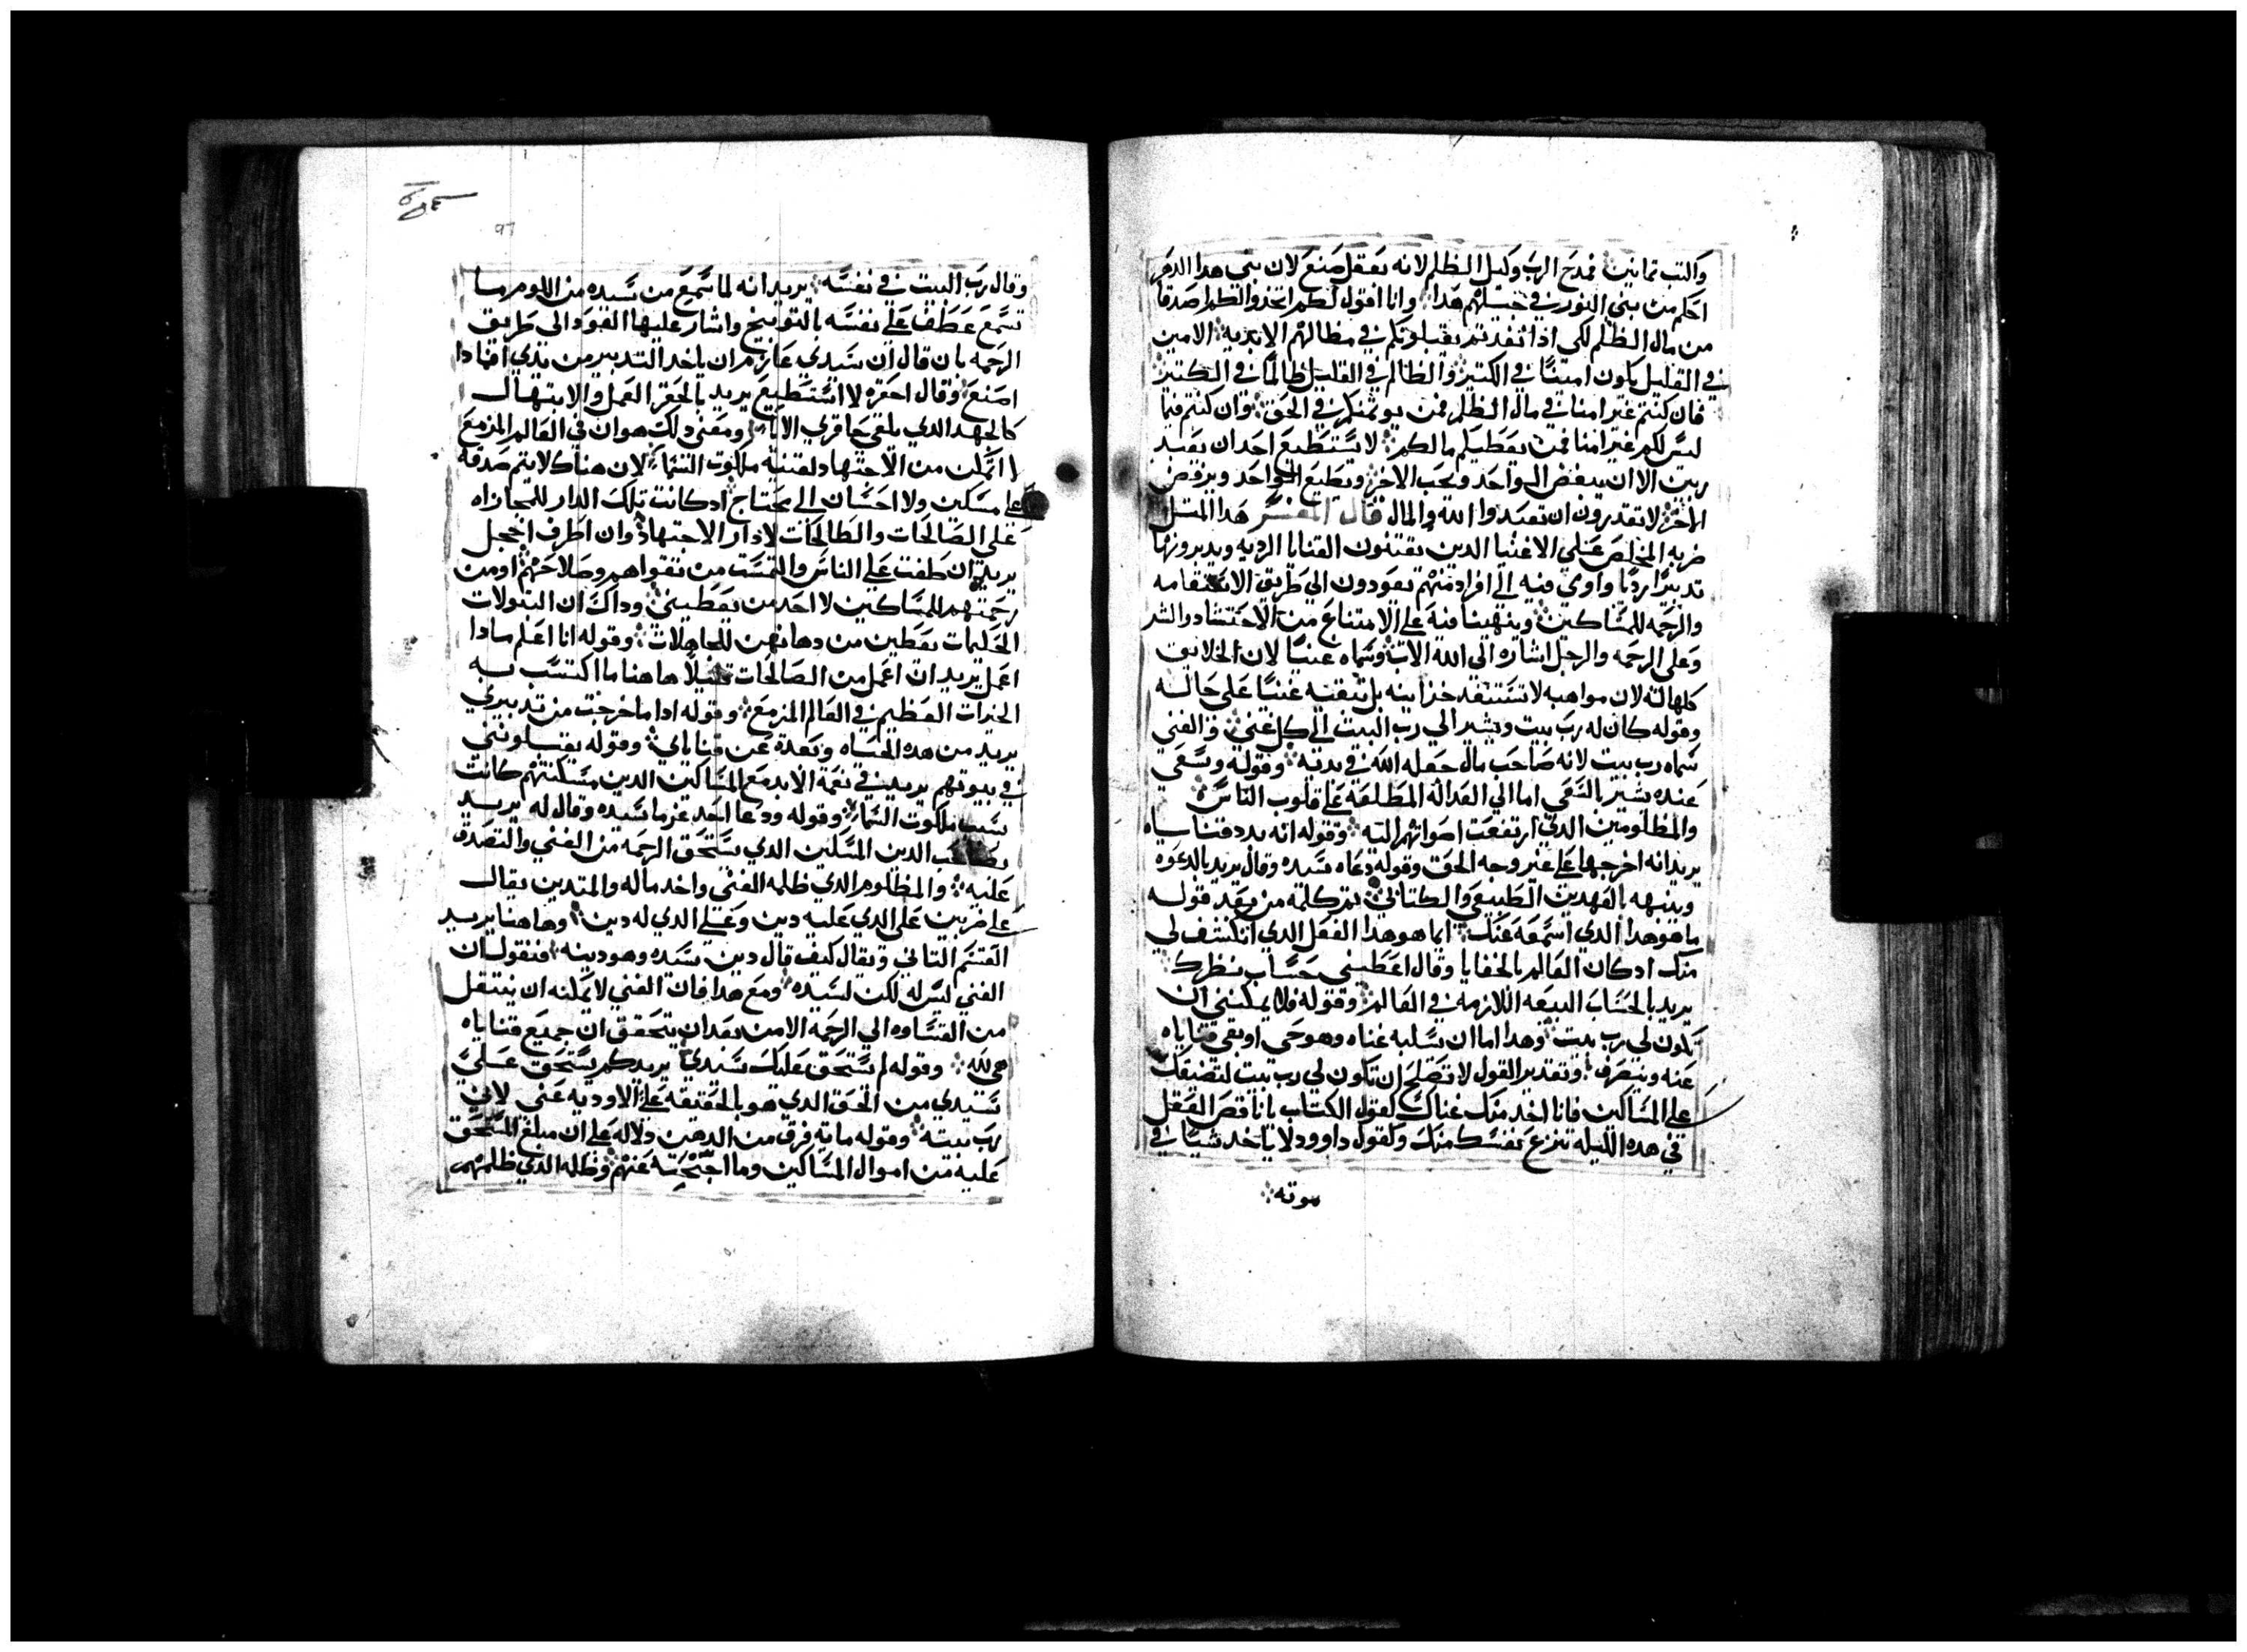 واكتب ثمانين فمدح الرب وكيل الظلم لانه بعقل صنع لان بني هدا الدهر
احكم من بني النور في جيلهم هدا وانا اقول لكم اتخدوا لكم اصدقا
من مال الظلم لكي ادا نفد تم يقبلونكم في مظالهم الابدية الامين
في القليل يكون امينًا في الكتير والظالم في القليل ظالمًا في الكتير
فان كنتم غير امنا في مال الظلم فمن يوتمنكم في الحق وان كنتم فيما
ليس لكم غير امنا فمن يعطيكم مالكم لا يستطيع احد ان يعبد
ربين الا ان يبغض الواحد ويحب الاخر ويطيع الواحد ويرفض
الاخر لا تقدرون ان تعبدوا الله والمال قال المفسر هدا المتل
ضربه المخلص على الاغنيا الدين يقتنون القنايا الرديه ويدبرونها
تدبيرًا رديًا واوي فيه الى افراد منهم يعودون الي طريق الاستقامه
والرحمه للمساكين وينهينا فيه على الامتناع من الاحتشاد والشر
وعلى الرحمه والرجل اشاره الى الله الاب وسماه غنيًا لان الخلايق
كلها له لان مواهبه لا تستنفد خزاينه بل تبقيه غنيًا على حاله
وقوله كان له رب بيت ويشير الي رب البيت الى كل غني والغني
سماه رب بيت لانه صاحب مال جعله الله في يديه وقوله وسعي
عنده يشير بالسعي اما الي العداله المطلعة على قلوب الناس
والمظلومين الدين ارتفعت اصواتهم اليه وقوله انه بدد قناياه
يريد انه اخرجها على غير وجه الحق وقوله دعاه سيده وقال يريد بالدعوه
وينبهه بالعهدين الطبيعي والكتابي تم كلمه من بعد قوله
ما هو هدا الدي اسمعه عنك ايما هو هدا الفعل الدي انكشف لي
منك اد كان العالم بالخفايا وقال اعطيني حساب نظرك
يريد بالحساب التبعه اللازمه في العالم وقوله فلا يمكنني ان
يكون لي رب بيت وهدا اما ان يسلبه غناه وهو حي او بقي قناياه
عنه وينصرف وتقدير القول لا تصلح ان تكون لي رب بيت لتضيقك
على المساكين فانا اخد منك غناك كقول الكتاب يا ناقص العقل
في هده الليله تنزع نفسك منك وكقول داوود لا ياخد شيًا في
موته
97
وقال رب البيت في نفسه يريد انه لما سمع من سيده من اللوم ما
سمع عطف على نفسه بالتوبيخ واشار عليها القود الى طريق
الرحمه بان قال ان سيدي عازم ان ياخد التدبير من يدي افمادا
اصنع وقال احفره لا استطيع يريد بالحفر العمل والابتهال
كالجهد الدي يلقي حافري الابار ومعنى دلك هو ان في العالم المزمع
لا اتمكن من الاجتهاد لقتنيه ملكوت السما لان هناك لا يتم صدقه
على مسكين ولا احسان الى محتاج اد كانت تلك الدار للمجازاه
على الصالحات والطالحات لا دار الاجتهاد وان اطرف اخجل
يريد ان طفت على الناس والتمست من تقواهم وصلاحهم او من
رحمتهم للمساكين لا احد من يعطيني وداك ان البتولات
الحكيمات يعطين من دهانهن للجاهلات وقوله انا اعلم مادا
اعمل يريد ان اعمل من الصالحات قليلًا هاهنا ما اكتسب به
الخيرات العظيم في العالم المزمع وقوله ادا ما خرجت من تدبيري
يريد من هده الحياه وبعده عن قناياي وقوله يقبلونني
في بيوتهم يريد في نعمة الابد مع المساكين الدين مسكنتهم كانت
سبب ملكوت السما وقوله ودعا احد غرما سيده وقال له يريد
بصاحب الدين المسكين الدي يستحق الرحمه من الغني والتصدق
عليه والمظلوم الدي ظلمه الغني واخد ماله والمتدين يقال
على ضربين على الدي عليه دين وعلى الدي له دين وهاهنا يريد
القسم التاني ويقال كيف قال دين سيده وهو دينه فنقول ان
الغني ليس له لكن لسيده ومع هدا فان الغني لا يمكنه ان ينتقل
من القساوه الي الرحمه الا من بعد ان يتحقق ان جميع قناياه
هي لله وقوله لم يستحق عليك سيدي يريد كم يستحق على
سيدي من الحق الدي هو بالحقيقه على الاوديه عني لاني
رب بيته وقوله مايه فرق من الدهن دلاله على ان مبلغ المستحق
عليه من اموال المساكين وما احتجبته عنهم وظله الدي ظلمهم